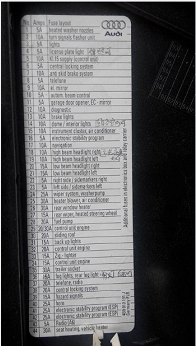 No. Amps Fuse layout
Audi
1 5A heated washer nozzles
2 10A turn signals flasher unit
3 5A lights
4 5A license plate light
5 10A
6 5A central locking system
7 10A anti skid brake system
8 5A telefone
9 10A el. mirror
10 5A
11 5A garage door opener, EC - mirror
12 10A diagnostic
13 10A brake lights
14 10A dome / interior lights
15 10A instrument cluster, air conditioner
16 5A electronic stability program
17 10A navigation
18 10A high beam headlight right
19 10A high beam headlight left
20 15A low beam headlight right
21 15A low beam headlight left
22 5A right side / sidemarkers right
23 5A left side / sidemarkers left
24 25A wiper system, washerpump
25 30A heater blower, air conditioner
26 30A rear window heater
27 15A rear wiper, heated steering wheel
28 20A fuel pump
29 20/30A control unit engine
30 20A sliding roof
31 15A back up lights
32 20A control unit engine
33 15A cig.- lighter
34 15A control unit engine
35 30A trailer socket
36 15A fog lights, rear fog light
37 20A telefone, radio
38 20A central locking system
39 15A hazard signals
40 25A horn
41 25A electronic stability program (ESP)
42 25A electronic stability program (ESP)
seat heating, vehicle heater
Additional fuses in electronics box and relay carrier